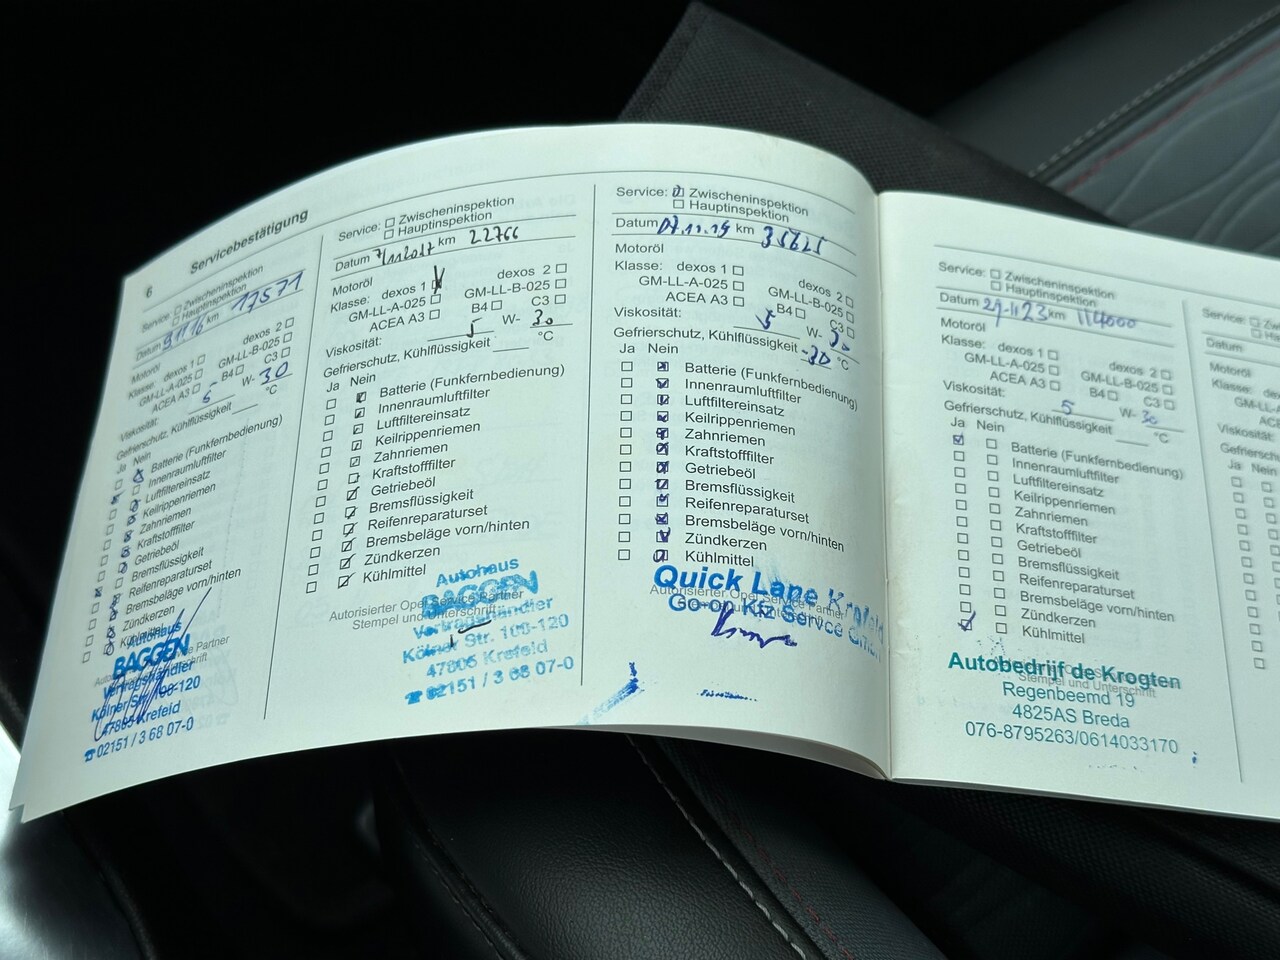 6
Servicebestätigung
Service: Zwischeninspektion
Hauptinspektion
Datum 9.11.16 km 17571
Motoröl
Klasse: dexos 1 dexos 2
GM-LL-A-025 GM-LL-B-025
ACEA A3 B4 C3
Viskosität: 5 W- 30
Gefrierschutz, Kühlflüssigkeit °C
Ja Nein
Batterie (Funkfernbedienung)
Innenraumluftfilter
Luftfiltereinsatz
Keilrippenriemen
Zahnriemen
Kraftstofffilter
Getriebeöl
Bremsflüssigkeit
Reifenreparaturset
Bremsbeläge vorn/hinten
Zündkerzen
Kühlmittel
Autohaus
BAGGEN
Vertragshändler
Kölner Str. 100-120
47805 Krefeld
☎ 02151 / 3 68 07-0
Service: Zwischeninspektion
Hauptinspektion
Datum 7/11 2017 km 22766
Motoröl
Klasse: dexos 1 dexos 2
GM-LL-A-025 GM-LL-B-025
ACEA A3 B4 C3
Viskosität: 5 W- 30
Gefrierschutz, Kühlflüssigkeit °C
Ja Nein
Batterie (Funkfernbedienung)
Innenraumluftfilter
Luftfiltereinsatz
Keilrippenriemen
Zahnriemen
Kraftstofffilter
Getriebeöl
Bremsflüssigkeit
Reifenreparaturset
Bremsbeläge vorn/hinten
Zündkerzen
Kühlmittel
Autorisierter Opel Service Partner
Stempel und Unterschrift
Autohaus
BAGGEN
Vertragshändler
Kölner Str. 100-120
47805 Krefeld
☎ 02151 / 3 68 07-0
Service: Zwischeninspektion
Hauptinspektion
Datum 07.11.19 km
Motoröl
Klasse: dexos 1 dexos 2
GM-LL-A-025 GM-LL-B-025
ACEA A3 B4 C3
Viskosität: 5 W- 30
Gefrierschutz, Kühlflüssigkeit -30 °C
Ja Nein
Batterie (Funkfernbedienung)
Innenraumluftfilter
Luftfiltereinsatz
Keilrippenriemen
Zahnriemen
Kraftstofffilter
Getriebeöl
Bremsflüssigkeit
Reifenreparaturset
Bremsbeläge vorn/hinten
Zündkerzen
Kühlmittel
Autorisierter Opel Service Partner
Quick Lane Krefeld
Kfz Service
Service: Zwischeninspektion
Hauptinspektion
Datum 29-11 23 km 114000
Motoröl
Klasse: dexos 1 dexos 2
GM-LL-A-025 GM-LL-B-025
ACEA A3 B4 C3
Viskosität: 5 W- 30
Gefrierschutz, Kühlflüssigkeit °C
Ja Nein
Batterie (Funkfernbedienung)
Innenraumluftfilter
Luftfiltereinsatz
Keilrippenriemen
Zahnriemen
Kraftstofffilter
Getriebeöl
Bremsflüssigkeit
Reifenreparaturset
Bremsbeläge vorn/hinten
Zündkerzen
Kühlmittel
Stempel und Unterschrift
Autobedrijf de Krogten
Regenbeemd 19
4825AS Breda
076-8795263/0614033170
Service:
Datum
Motoröl
Klasse:
Viskosität:
Ja Nein